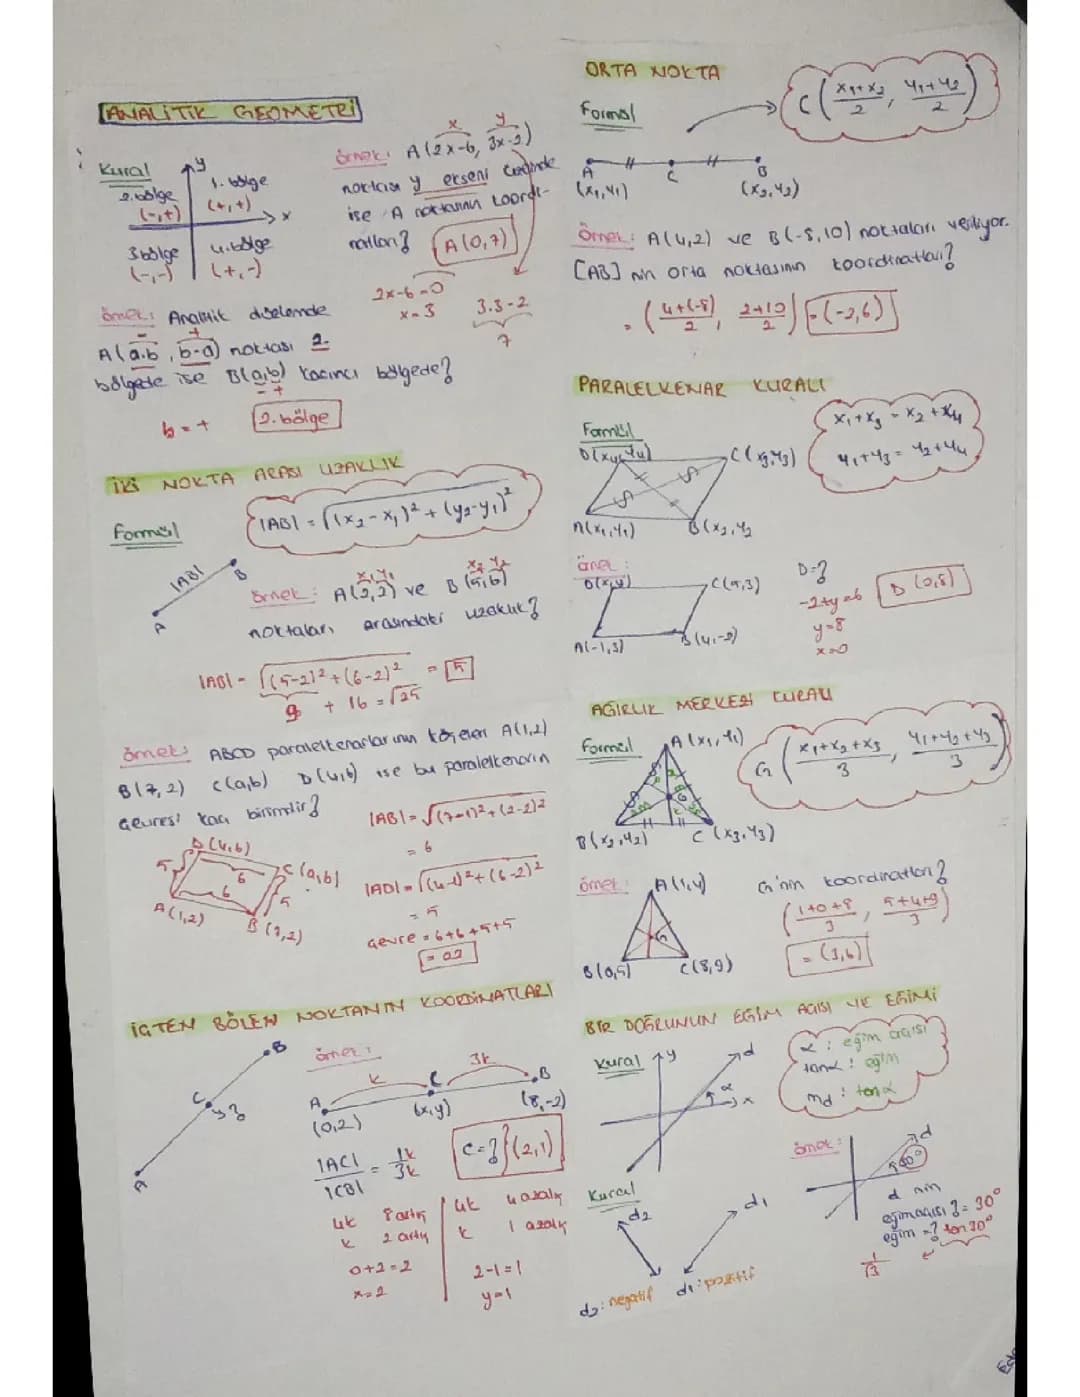 ANALİTİK GEOMETRİ
Kural
y
x
2.bölge
(-,+)
1. bölge
(+,+)
3.bölge
(-,-)
4.bölge
(+,-)
örnek: A(2x-6, 3x-2)
x y
noktası y ekseni üzerinde
ise A noktasının koordi-
natları?
A(0,7)
2x-6=0
x=3
3.3-2
7
örnek: Analitik düzlemde
- +
A(a.b, b-a) noktası 2.
bölgede ise B(a,b) kaçıncı bölgede?
- +
b=+
2.bölge
İKİ NOKTA ARASI UZAKLIK
Formül
|AB| = √(x₂-x₁)²+(y₂-y₁)²
|AB|
A
B
x₁ y₁ x₂ y₂
örnek: A(2,2) ve B(5,6)
noktaları arasındaki uzaklık?
|AB| = √(5-2)²+(6-2)² = 5
9 + 16 = √25
örnek: ABCD paralelkenarlarının köşeleri A(1,2)
B(7,2) C(a,b) D(4,6) ise bu paralelkenarın
çevresi kaç birimdir?
D(4,6)
C(a,b)
5
6
6
5
A(1,2)
B(7,2)
|AB| = √(7-1)²+(2-2)²
= 6
|AD| = √(4-1)²+(6-2)²
= 5
Çevre = 6+6+5+5
= 22
İÇTEN BÖLEN NOKTANIN KOORDİNATLARI
B
C
A
örnek:
k
3k
A
C
B
(0,2)
(x,y)
(8,-2)
|AC|
|CB|
= 1k
3k
C=? (2,1)
4k 8 artış
k 2 artış
0+2=2
x=2
4k 4 azalış
k 1 azalış
2-1=1
y=1
ORTA NOKTA
Formül
C(x₁+x₂/2, y₁+y₂/2)
A
C
B
(x₁,y₁)
(x₂,y₂)
örnek: A(4,2) ve B(-8,10) noktaları veriliyor.
[AB] nin orta noktasının koordinatları?
= (4+(-8)/2, 2+10/2) = (-2,6)
PARALELKENAR KURALI
Formül
x₁+x₃ = x₂+x₄
y₁+y₃ = y₂+y₄
D(x₄,y₄)
C(x₃,y₃)
A(x₁,y₁)
B(x₂,y₂
örnek:
D(x,y)
C(5,3)
A(-1,3)
B(4,-2)
D=?
-2+y=6
y=8
x=0
D(0,8)
AĞIRLIK MERKEZİ KURALI
Formül
A(x₁,y₁)
G
G(x₁+x₂+x₃/3, y₁+y₂+y₃/3)
B(x₂,y₂)
C(x₃,y₃)
örnek:
A(1,4)
G
B(0,5)
C(8,9)
G'nin koordinatları?
(1+0+8/3, 5+4+9/3)
= (3,6)
BİR DOĞRUNUN EĞİM AÇISI VE EĞİMİ
Kural
y
d
α
x
α: eğim açısı
tanα: eğim
md: tanα
Kural
d₂
d₁
d₂: negatif d₁: pozitif
örnek:
d
30°
d nin
eğim açısı?= 30°
eğim =? tan30°
1
√3